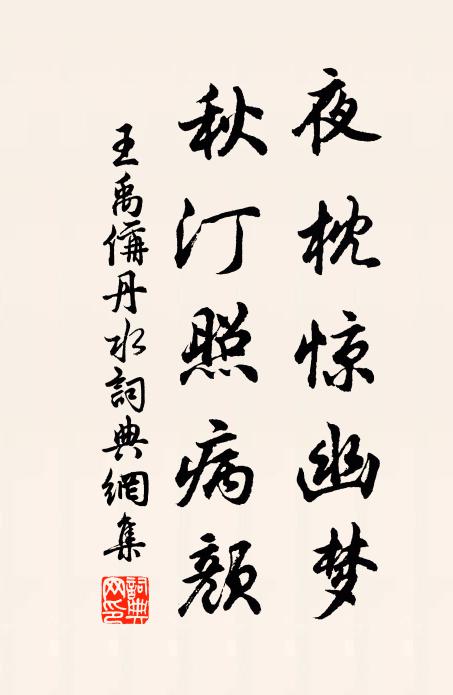 夜枕惊幽梦
秋汀照病颜
王禹偁丹水詞典網集
詞典网印